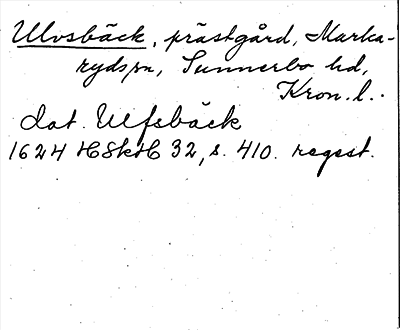 Ulvsbäck, prästgård, Marka-
rydssn, Sunnerbo hd,
Kron. l..
dat. Ulfsbäck
1624 HSkH 32, s. 410. regest.